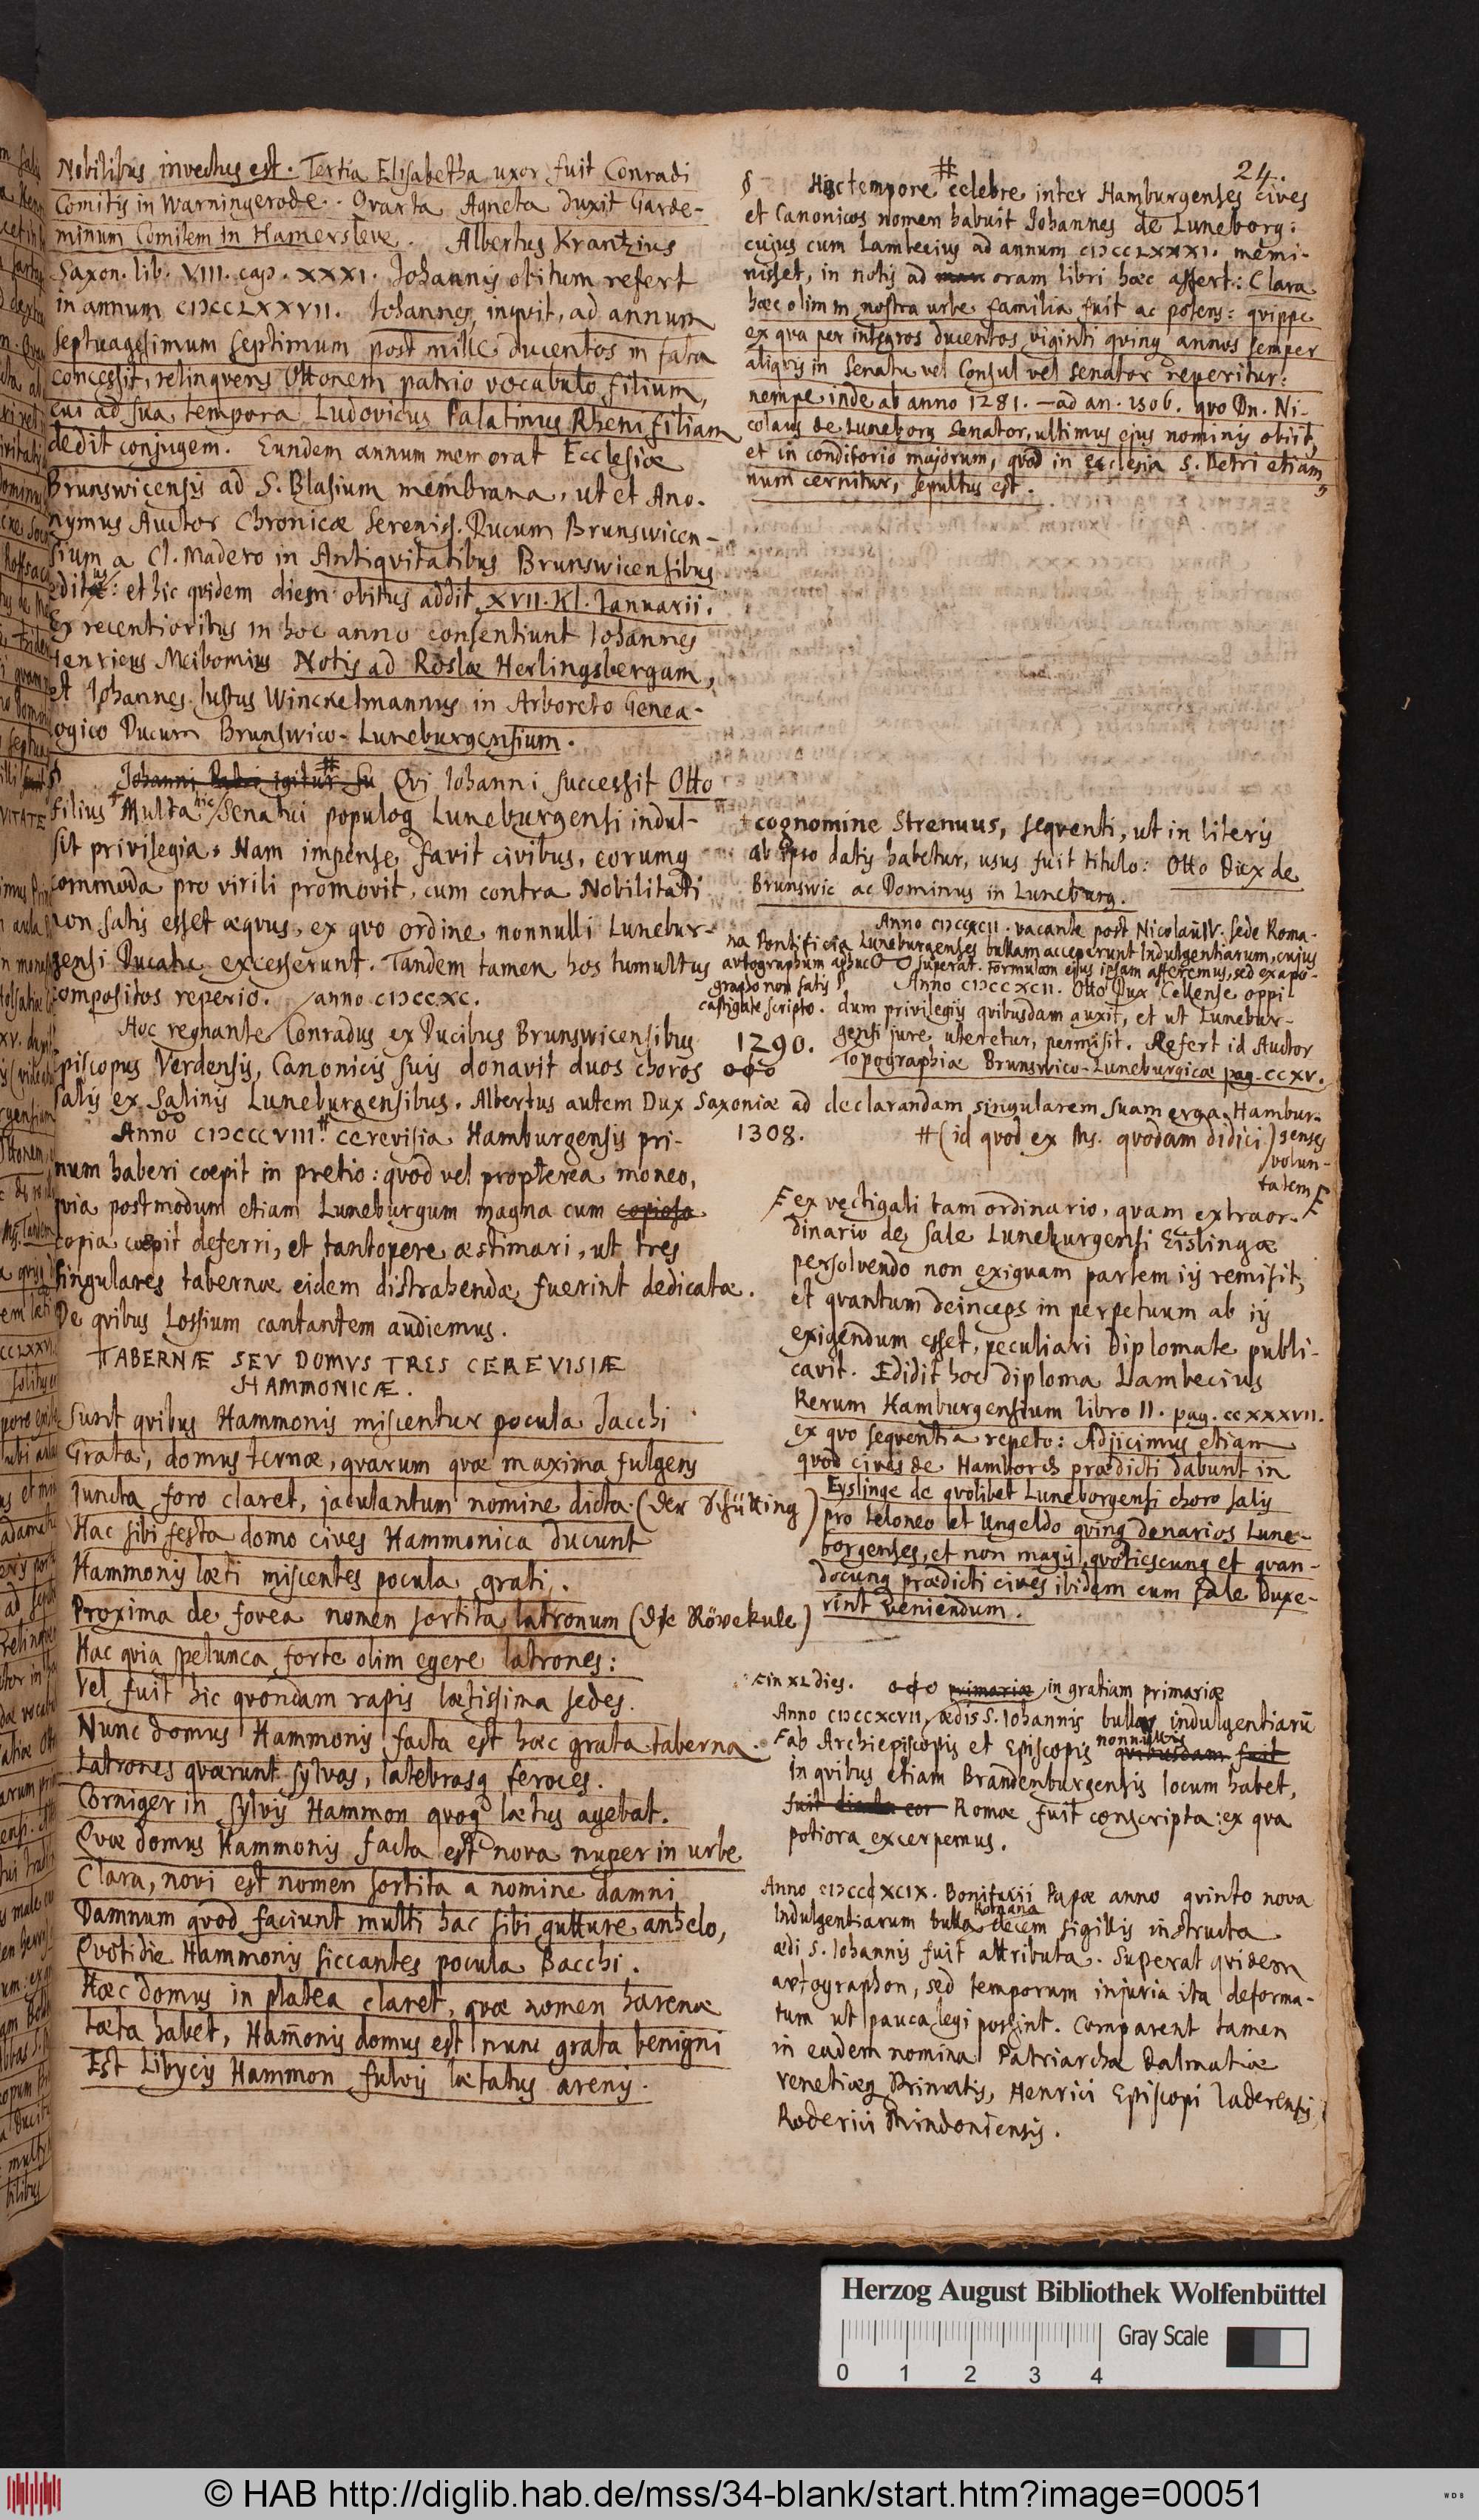 Nobilibus invectus est. Tertia Elisabetha uxor fuit Conradi
Comitis in Warningerode. Qvarta Agneta duxit Garde-
minum Comitem in Hamersleve. Albertus Krantzius
Saxon. lib. VIII. cap. XXXI. Johannis obitum refert
in annum CIƆCCLXXVII. Johannes, inqvit, ad annum
septuagesimum septimum post mille ducentos in fata
concessit, relinqvens Ottonem patrio vocabulo filium,
cui ad sua tempora Ludovicus Palatinus Rheni filiam
dedit conjugem. Eundem annum memorat Ecclesiæ
Brunswicensis ad S. Blasium membrana, ut et Ano-
nymus Auctor Chronicæ Sereniss. Ducum Brunswicen-
sium a Cl. Madero in Antiqvitatibus Brunswicensibus
editus: et hic qvidem diem obitus addit XVII. Kl. Januarii.
Ex recentioribus in hoc anno consentiunt Johannes
Henricus Meibomius Notis ad Roslæ Herlingsbergam,
et Johannes Justus Winckelmannus in Arboreto Genea-
logico Ducum Brunswico-Luneburgensium.
§ Johanni igitur su Qvi Johanni successit Otto
filius + Multa hic Senatui populoq Luneburgensi indul-
sit privilegia. Nam impense favit civibus, eorumq
commoda pro virili promovit, cum contra Nobilitati
non satis esset æqvus, ex qvo ordine nonnulli Lunebur-
gensi Ducatu excesserunt. Tandem tamen hos tumultus
compositos reperio. anno CIƆCCXC.
Hoc regnante Conradus ex Ducibus Brunswicensibus
Episcopus Verdensis, Canonicis suis donavit duos choros
salis ex Salinis Luneburgensibus. Albertus autem Dux Saxoniæ ad declarandam singularem suam erga Hambur-
Anno CIƆCCCVIII # cerevisia Hamburgensis pri-
mum haberi cœpit in pretio: qvod vel propterea moneo,
qvia postmodum etiam Luneburgum magna cum copiosa
copia cœpit deferri, et tantopere æstimari, ut tres
singulares tabernæ eidem distrahendæ fuerint dedicatæ.
De qvibus Lossium cantantem audiemus.
TABERNÆ SEV DOMVS TRES CEREVISIÆ
HAMMONICÆ.
Sunt qvibus Hammonis miscentur pocula Jacchi
Grata, domus ternæ, qvarum qvæ maxima fulgens
Juncta foro claret, jaculantum nomine dicta. (Der Schütting)
Hac sibi festa domo cives Hammonica ducunt
Hammonis læti miscentes pocula grati.
Proxima de fovea nomen sortita latronum (die Röwekule)
Hac qvia spelunca forte olim egere latrones:
Vel fuit hic qvondam rapis lætissima sedes.
Nunc domus Hammonis facta est hæc grata taberna.
Latrones qværunt sylvas, latebrasq feroces.
Corniger in sylvis Hammon qvoq lætus agebat.
Qvæ domus Hammonis facta est nova nuper in urbe
Clara, novi est nomen sortita a nomine damni
Damnum qvod faciunt multi hac sibi gutture anhelo,
Qvotidie Hammonis siccantes pocula Bacchi.
Hæc domus in platea claret, qvæ nomen harenæ
Læta habet, Ham̄onis domus est nunc grata benigni
Est Libycis Hammon fulvis lætatus arenis.
24.
§ Hoc tempore # celebre inter Hamburgenses cives
et Canonicos nomen habuit Johannes de Luneborg:
cujus cum Lambecius ad annum CIƆCCLXXXI. memi-
nisset, in notis ad oram libri hæc affert: Clara
hæc olim in nostra urbe familia fuit ac potens: qvippe
ex qva per integros ducentos viginti qvinq annos semper
aliqvis in Senatu vel Consul vel Senator reperitur:
nempe inde ab anno 1281. — ad an. 1506. qvo Dn. Ni-
colaus de Luneborg Senator, ultimus ejus nominis obiit,
et in conditorio majorum, qvod in Ecclesia S. Petri etiam
num cernitur, sepultus est.
+ cognomine Strenuus, seqventi, ut in literis
ab ipso datis habetur, usus fuit titulo: Otto Dux de
Brunswic ac Dominus in Luneburg.
Anno CIƆCCXCII. vacante post Nicolaum IV. sede Roma-
na Pontificia Luneburgenses bullam acceperunt Indulgentiarum, cujus
avtographum adhuc superat. Formulam ejus ipsam afferemus, sed ex apo-
grapho non satis
castigate scripto.
Anno CIƆCCXCII. Otto Dux Cellense oppi-
dum privilegiis qvibusdam auxit, et ut Lunebur-
gensi jure uteretur, permisit. Refert id Auctor
Topographiæ Brunswico-Luneburgicæ pag. CCXV.
1290.
1308.
# (id qvod ex Ms. qvodam didici)
genses
volun-
tatem F
F ex vectigali tam ordinario, qvam extraor-
dinario de sale Luneburgensi Eislingæ
persolvendo non exiguam partem iis remisit,
et qvantum deinceps in perpetuum ab iis
exigendum esset, peculiari Diplomate publi-
cavit. Edidit hoc diploma Lambecius
Rerum Hamburgensium libro II. pag. CCXXXVII.
ex qvo seqventia repeto: Adjicimus etiam
qvod cives de Hamborch prædicti dabunt in
Eyslinge de qvolibet Luneborgensi choro salis
pro teloneo et Ungeldo qvinq denarios Lune-
borgenses, et non magis, qvotiescunq et qvan-
docunq prædicti cives ibidem cum sale duxe-
rint veniendum.
F in XL dies. primariæ in gratiam primariæ
Anno CIƆCCXCVII, ædis S. Johannis bulla indulgentiarū
F ab Archiepiscopis et Episcopis nonnullis qvibusdam fuit
in qvibus etiam Brandenburgensis locum habet,
fuit Romæ fuit conscripta: ex qva
potiora excerpemus.
Anno CIƆCCXCIX. Bonifacii Papæ anno qvinto nova
Indulgentiarum bulla Romana decem sigillis instructa
ædi S. Johannis fuit attributa. Superat qvidem
avtographon, sed temporum injuria ita deforma-
tum ut pauca legi possint. Comparent tamen
in eadem nomina Patriarchæ Dalmatiæ
Venetiæq Primatis, Henrici Episcopi Jaderensis,
Roderici Mindoniensis.
Herzog August Bibliothek Wolfenbüttel
Gray Scale
0 1 2 3 4
© HAB http://diglib.hab.de/mss/34-blank/start.htm?image=00051
WDB